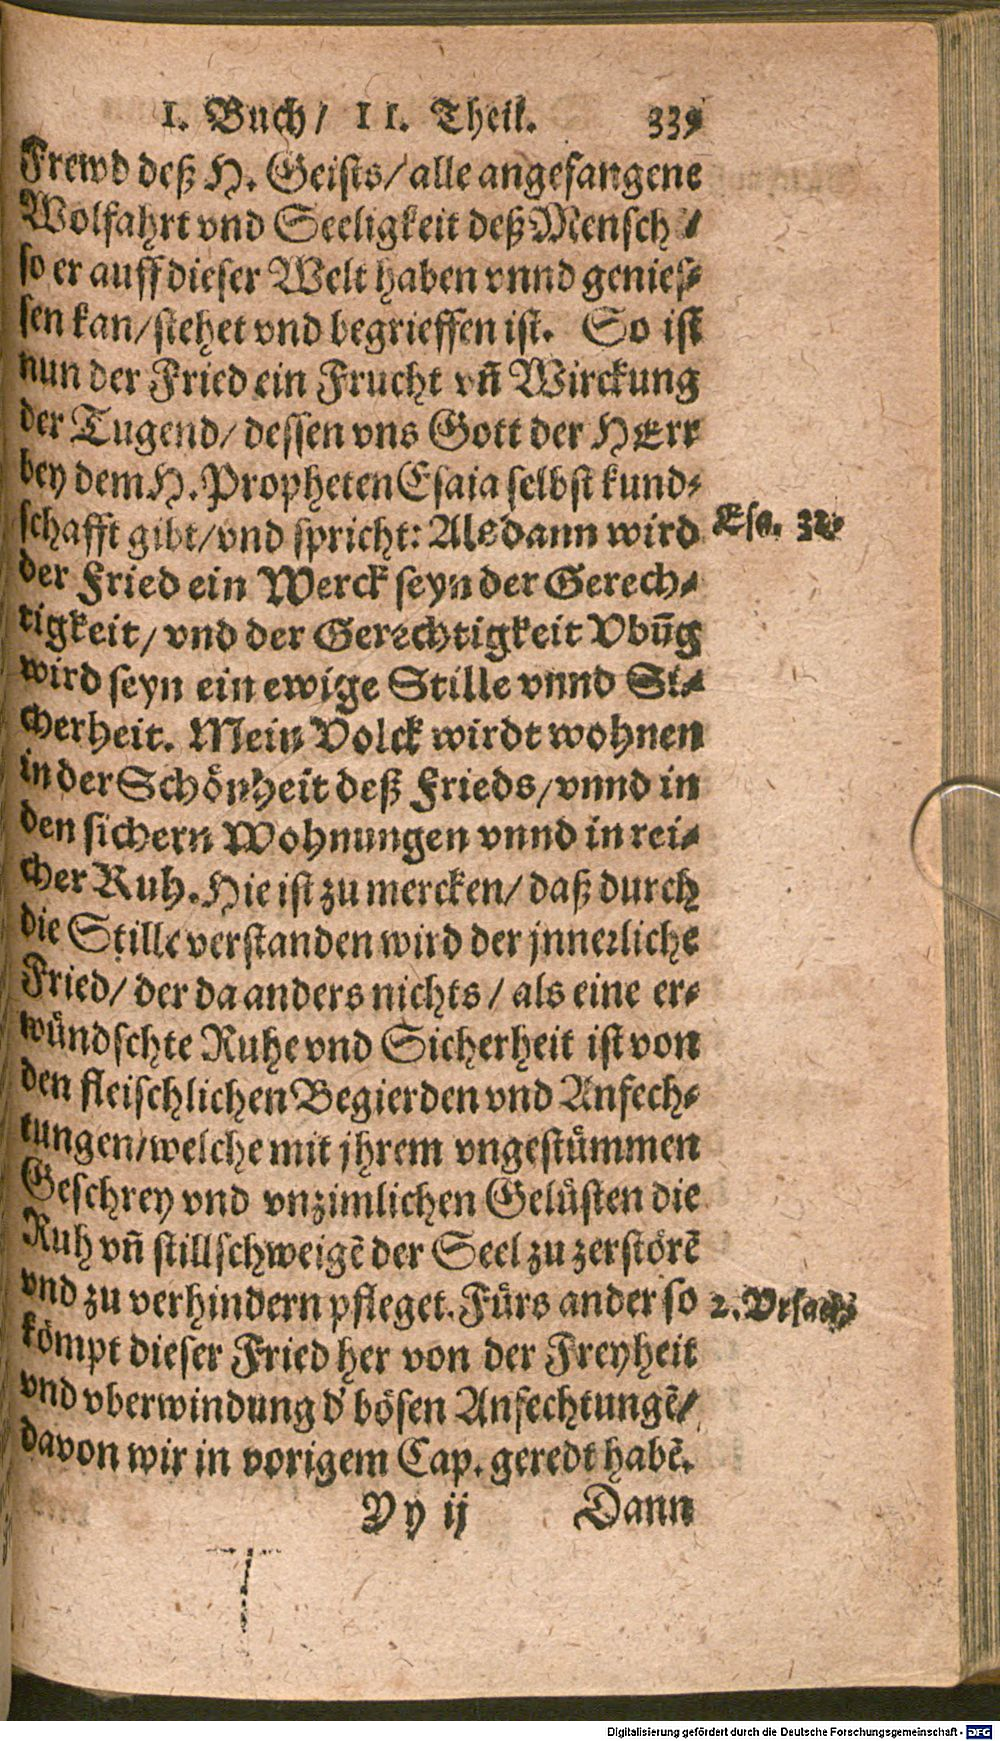 I. Buch/ II. Theil. 339
Frewd deß H. Geists/ alle angefangene
Wolfahrt vnd Seeligkeit deß Mensch /
so er auff dieser Welt haben vnnd genies-
sen kan/ stehet vnd begrieffen ist. So ist
nun der Fried ein Frucht vñ Wirckung
der Tugend/ dessen vns Gott der HErr
bey dem H. Propheten Esaia selbst kund-
schafft gibt/ vnd spricht: Alsdann wird
Esa. 32.
der Fried ein Werck seyn der Gerech-
tigkeit/ vnd der Gerechtigkeit Vbūg
wird seyn ein ewige Stille vnnd Si-
cherheit. Mein Volck wirdt wohnen
in der Schönheit deß Frieds/ vnnd in
den sichern Wohnungen vnnd in rei-
cher Ruh. Hie ist zu mercken/ daß durch
die Stille verstanden wird der jnnerliche
Fried/ der da anders nichts/ als eine er-
wündschte Ruhe vnd Sicherheit ist von
den fleischlichen Begierden vnd Anfech-
tungen/ welche mit jhrem vngestümmen
Geschrey vnd vnzimlichen Gelüsten die
Ruh vñ stillschweigē der Seel zu zerstörē
vnd zu verhindern pfleget. Fürs ander so
2. Vrsach
kömpt dieser Fried her von der Freyheit
vnd vberwindung d' bösen Anfechtungē/
davon wir in vorigem Cap. geredt habē.
Vy ij Dann
Digitalisierung gefördert durch die Deutsche Forschungsgemeinschaft - DFG